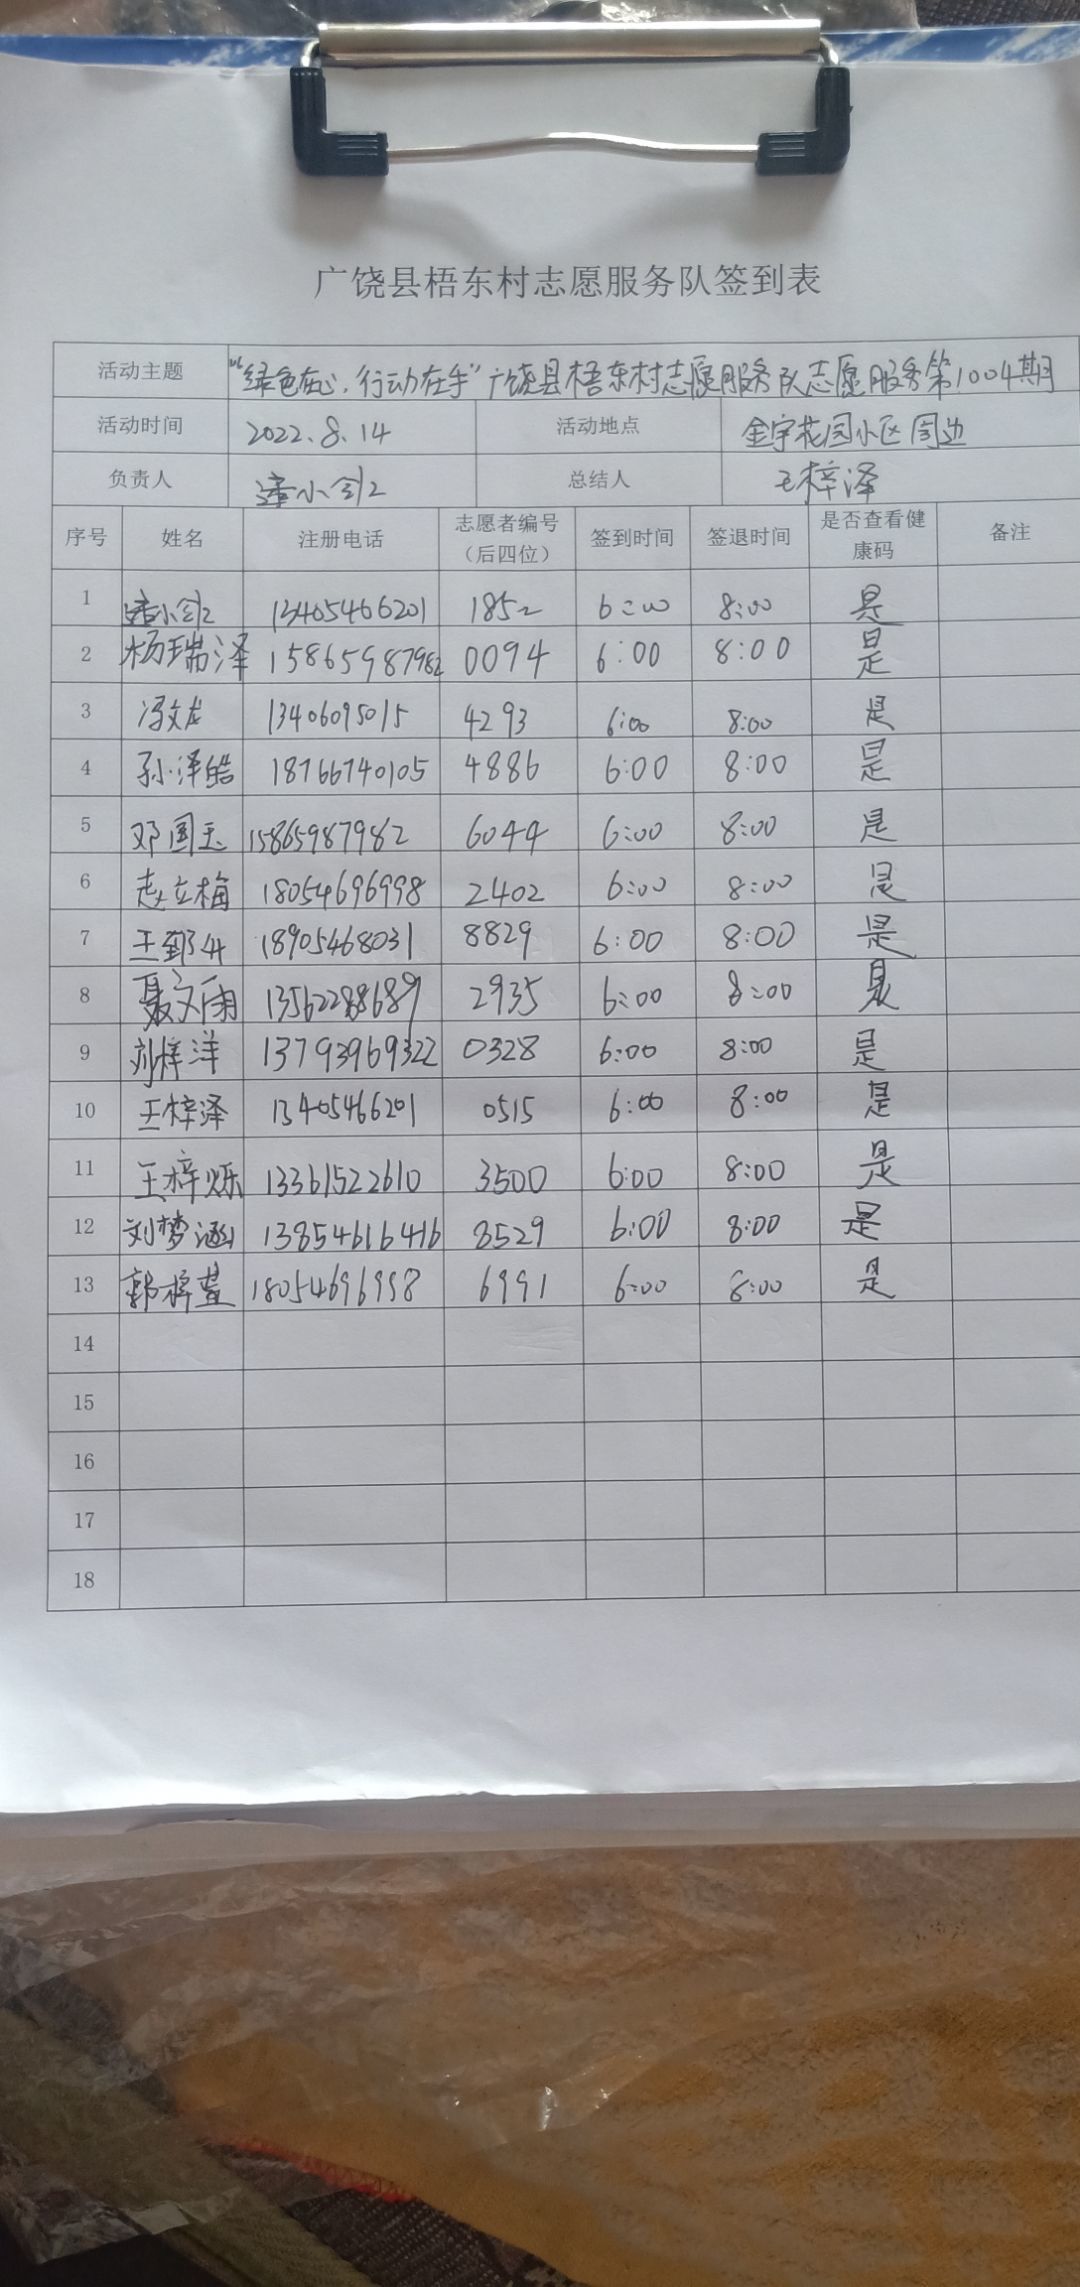 广饶县梧东村志愿服务队签到表
活动主题 “绿色在心,行动在手”广饶县梧东村志愿服务队志愿服务第1004期
活动时间 2022.8.14 活动地点 金宇花园小区周边
负责人 小 总结人 王梓泽
序号 姓名 注册电话 志愿者编号(后四位) 签到时间 签退时间 是否查看健康码 备注
1 小 13405466201 1852 6:00 8:00 是
2 杨瑞泽 15865987982 0094 6:00 8:00 是
3 冯文龙 13406095015 4293 6:00 8:00 是
4 孙泽皓 18766740105 4886 6:00 8:00 是
5 邓国玉 15865987982 6044 6:00 8:00 是
6 赵立梅 18054696998 2402 6:00 8:00 是
7 王郅 18905468031 8829 6:00 8:00 是
8 聂文雨 13562288689 2935 6:00 8:00 是
9 刘梓洋 13793969322 0328 6:00 8:00 是
10 王梓泽 13405466201 0515 6:00 8:00 是
11 王梓烁 13361522610 3500 6:00 8:00 是
12 刘梦涵 13854616416 8529 6:00 8:00 是
13 郭梓萱 18054696998 6991 6:00 8:00 是
14
15
16
17
18